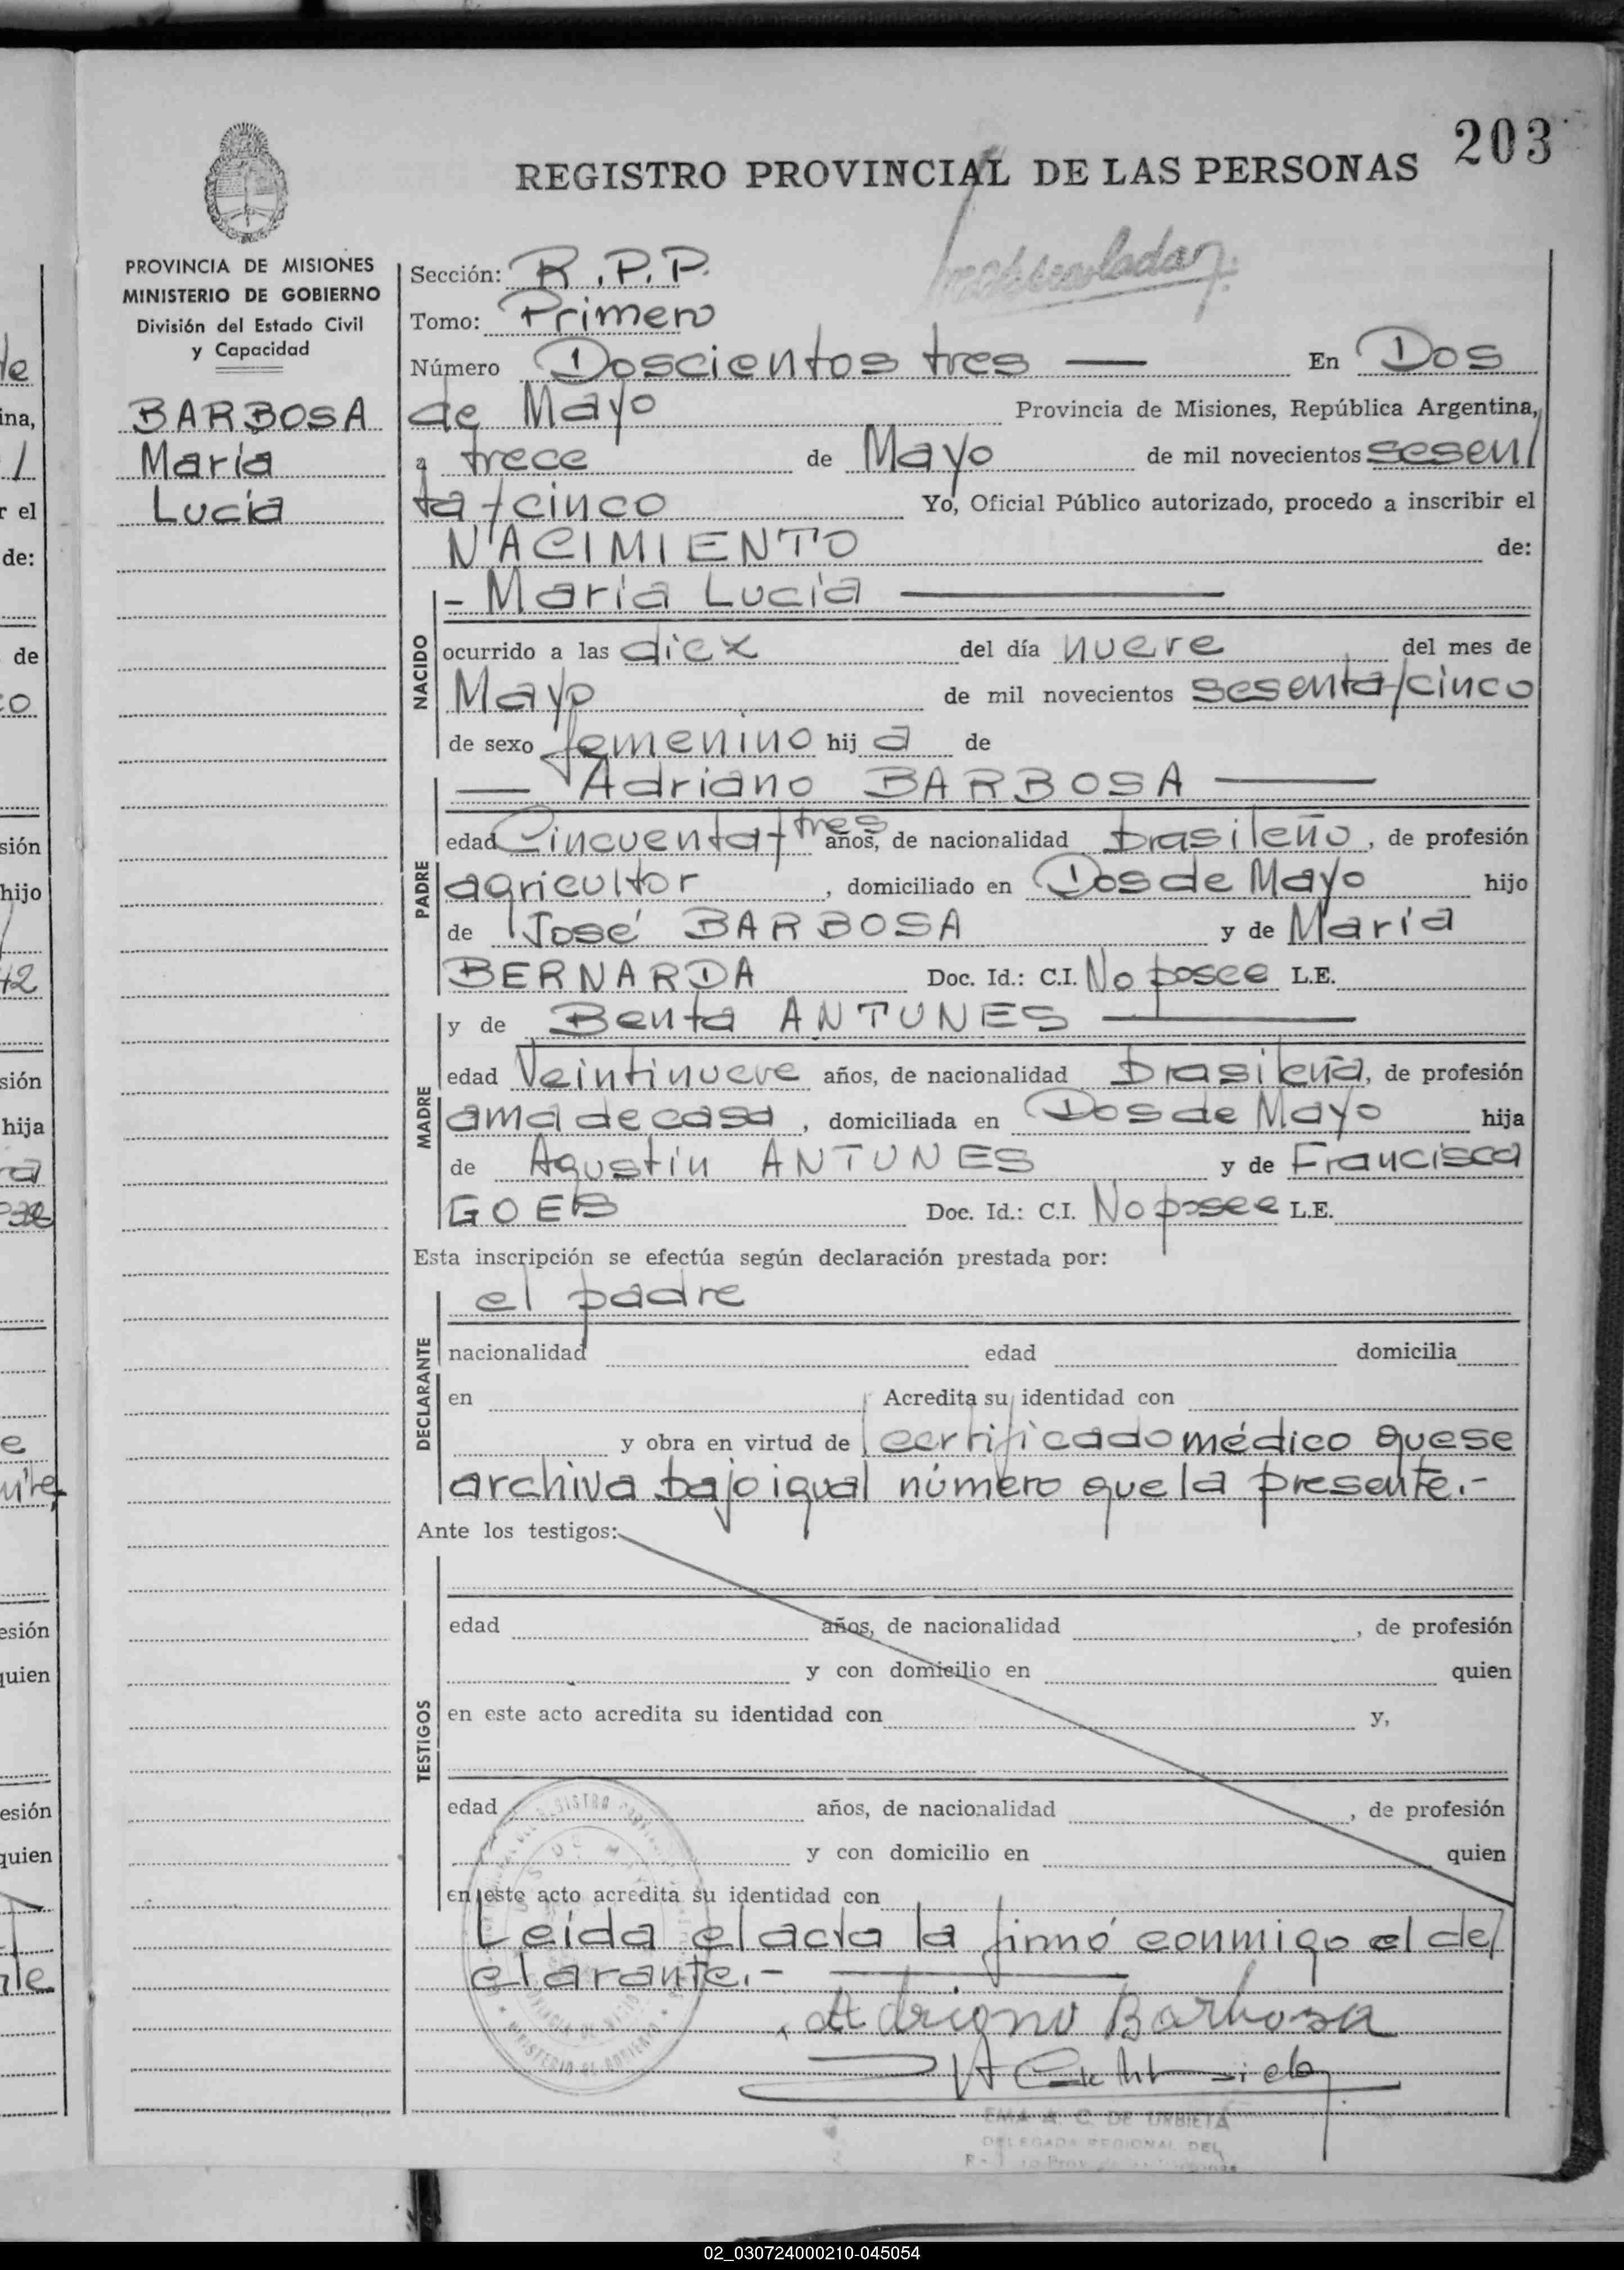 203
REGISTRO PROVINCIAL DE LAS PERSONAS
PROVINCIA DE MISIONES
MINISTERIO DE GOBIERNO
División del Estado Civil
y Capacidad
BARBOSA
María
Lucía
Sección: R.P.P.
Tomo: Primero
Número Doscientos tres — En Dos
de Mayo Provincia de Misiones, República Argentina,
a trece de Mayo de mil novecientos sesen/
ta y cinco Yo, Oficial Público autorizado, procedo a inscribir el
NACIMIENTO de:
- María Lucía —
NACIDO
ocurrido a las diez del día nueve del mes de
Mayo de mil novecientos sesenta y cinco
de sexo femenino hij a de
— Adriano BARBOSA —
PADRE
edad Cincuenta y tres años, de nacionalidad brasileño, de profesión
agricultor, domiciliado en Dos de Mayo hijo
de José BARBOSA y de María
BERNARDA Doc. Id.: C.I. No posee L.E.
y de Benta ANTUNES —
MADRE
edad Veintinueve años, de nacionalidad brasileña, de profesión
ama de casa, domiciliada en Dos de Mayo hija
de Agustín ANTUNES y de Francisca
GOES Doc. Id.: C.I. No posee L.E.
Esta inscripción se efectúa según declaración prestada por:
el padre
DECLARANTE
nacionalidad edad domicilia
en Acredita su identidad con
y obra en virtud de certificado médico que se
archiva bajo igual número que la presente.-
Ante los testigos:
TESTIGOS
edad años, de nacionalidad , de profesión
y con domicilio en quien
en este acto acredita su identidad con y,
edad años, de nacionalidad , de profesión
y con domicilio en quien
en este acto acredita su identidad con
Leída el acta la firmó conmigo el de/
clarante.- —
Adriano Barbosa
EMA A. C. DE URBIETA
DELEGADA REGIONAL DEL
MINISTERIO DE GOBIERNO
02_030724000210-045054